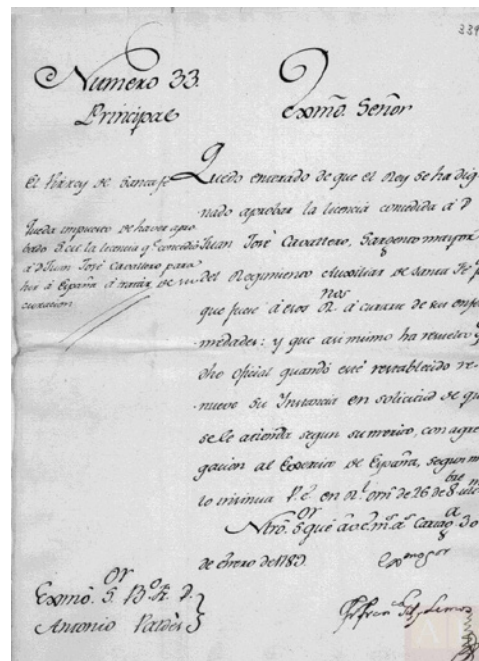 339
Numero 33.
Principal
Exmô. Señor
El Virrey de Santa fe
Queda impuesto de haver apro
bado S.M. la licencia q.e concedió
á D.n Juan José Cavallero para
hir á España á tratar de su
curacion
Quedo enterado de que el Rey se ha dig
nado aprobar la licencia concedida á D.
Juan José Cavallero, Sargento mayor
del Regimiento Auxiliar de Santa Fe p.
que fuese á esos R.nos á curarse de sus enfer
medades: y que asimismo ha resuelto q
dho oficial quando esté restablecido re-
nueve su Instancia en solicitud de que
se le atienda segun su merito, con agre
gacion al Exercito de España, segun m
lo insinua V.E. en R.l orn de 26 de 8.bre
Ntro. S.or gue á V.E. m.s a.s Cartag.a 30
de enero de 1789.
Exmo. S.or B.o Fr. D.
Antonio Valdés